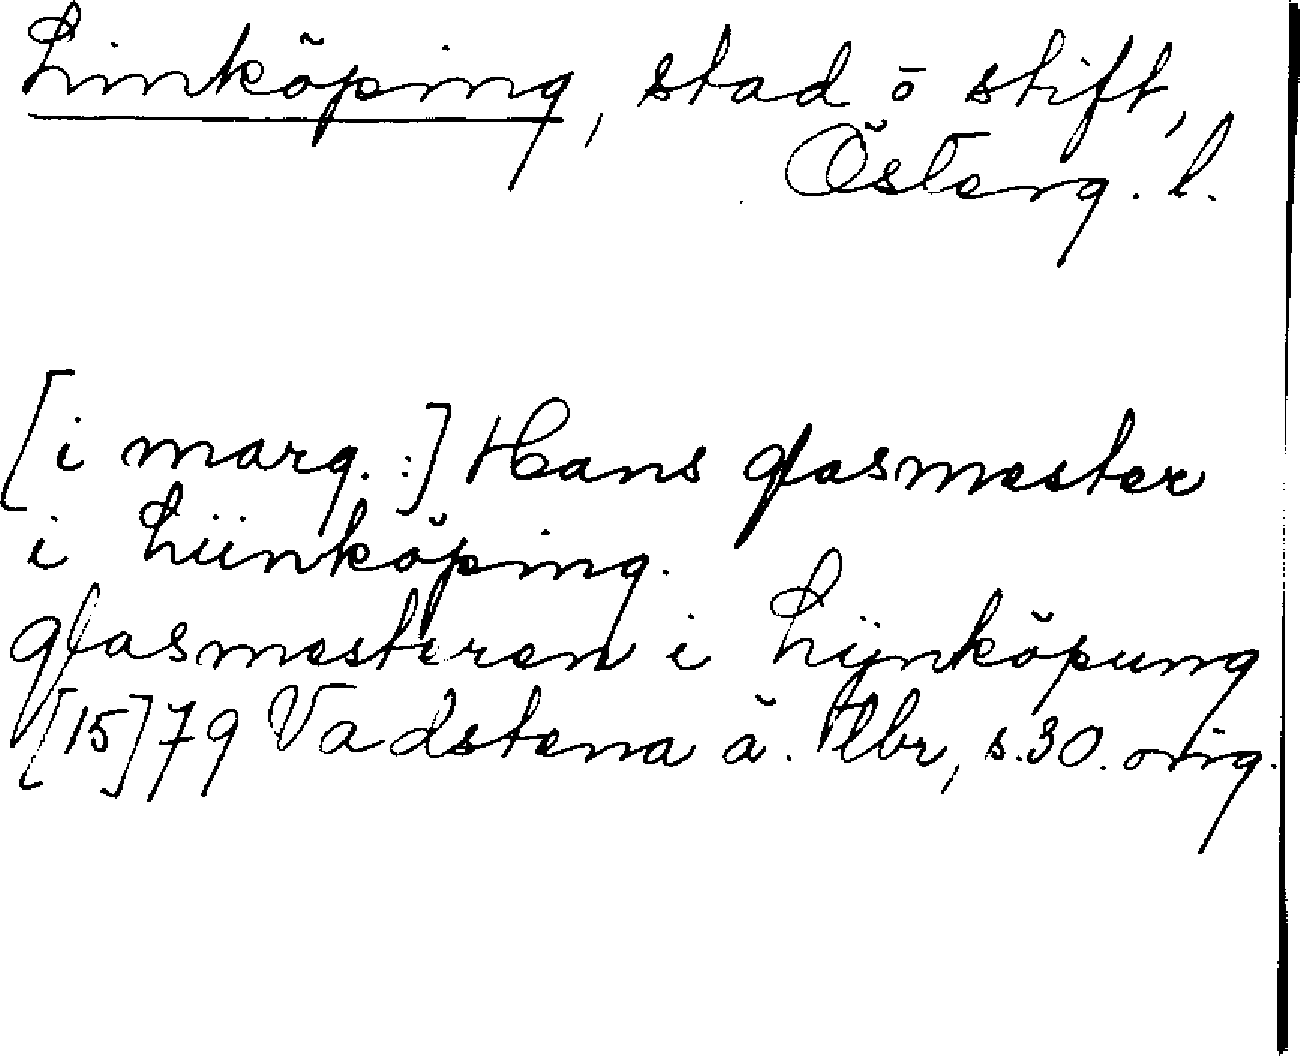 Linköping, stad ō stift,
Österg. l.
[i marg. :] Hans glasmester
i Liinköping.
glasmesteren i Lijnköpung
[15]79 Vadstena ä. Tlbr, s.30. orig.